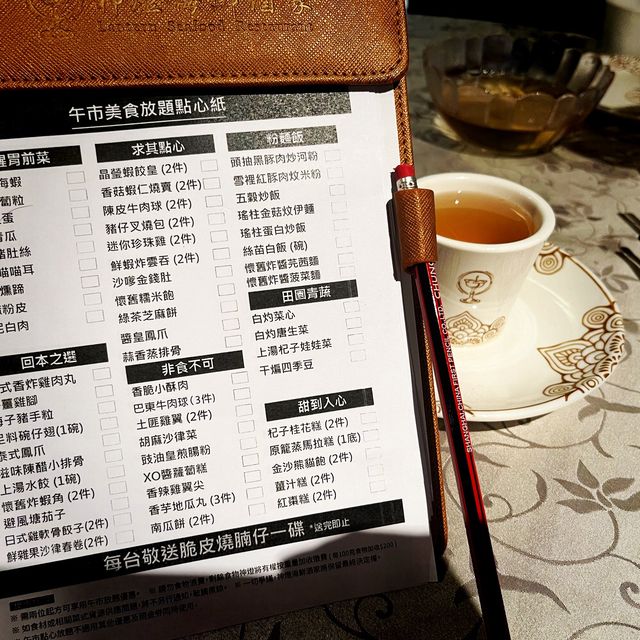 神燈海鮮酒家
Lantern Seafood Restaurant
午市美食放題點心紙
胃前菜
海蝦
蛋
肚絲
喵喵耳
燻蹄
粉皮
白肉
回本之選
式香炸雞肉丸
薑雞腳
子豬手粒
料碗仔翅(1碗)
泰式鳳爪
滋味陳醋小排骨
上湯水餃 (1碗)
懷舊炸蝦角 (2件)
避風塘茄子
日式雞軟骨餃子(2件)
鮮雜果沙律春卷(2件)
求其點心
晶瑩蝦餃皇 (2件)
香菇蝦仁燒賣 (2件)
陳皮牛肉球 (2件)
豬仔叉燒包 (2件)
迷你珍珠雞 (2件)
鮮蝦炸雲吞 (2件)
沙嗲金錢肚
懷舊糯米飽
綠茶芝麻餅
醬皇鳳爪
蒜香蒸排骨
非食不可
香脆小酥肉
巴東牛肉球 (3件)
土匪雞翼 (2件)
胡麻沙律菜
豉油皇煎腸粉
XO醬蘿蔔糕
香辣雞翼尖
香芋地瓜丸 (3件)
南瓜餅 (2件)
粉麵飯
頭抽黑豚肉炒河粉
雪裡紅豚肉炆米粉
五穀炒飯
瑤柱金菇炆伊麵
瑤柱蛋白炒飯
絲苗白飯 (碗)
懷舊炸醬芫茜麵
懷舊炸醬菠菜麵
田園青蔬
白灼菜心
白灼唐生菜
上湯杞子娃娃菜
干煸四季豆
甜到入心
杞子桂花糕 (2件)
原籠蒸馬拉糕 (1底)
金沙熊貓飽 (2件)
薑汁糕 (2件)
紅棗糕 (2件)
每台敬送脆皮燒腩仔一碟 *送完即止
SHANGHAI CHINA FIRST PENCIL CO.,LTD. CHUNG